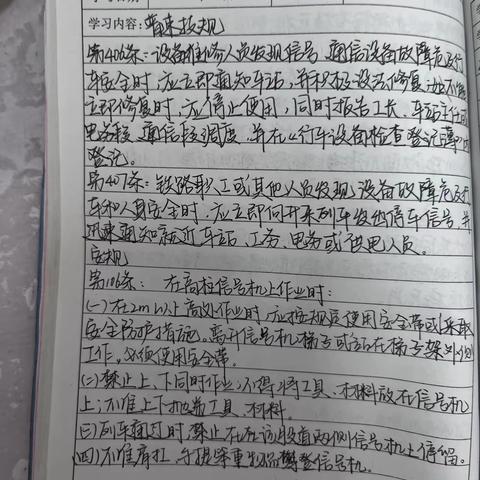 学习内容：普速技规
第406条：设备维修人员发现信号、通信设备故障危及行
车安全时，应立即通知车站，并积极设法修复；如不能
立即修复时，应停止使用，同时报告工长、车站主任或
电务段、通信段调度，并在《行车设备检查登记簿》内
登记。
第407条：铁路职工或其他人员发现设备故障危及行
车和人身安全时，应立即向开来列车发出停车信号，并
迅速通知就近车站、工务、电务或供电人员。
安规
第106条： 在高柱信号机上作业时：
(一)在2m以上高处作业时，应按规定使用安全带或采取
安全防护措施。离开信号机梯子或站在梯子架外侧
工作，必须使用安全带。
(二)禁止上、下同时作业，不得将工具、材料放在信号机
上；不准上下抛递工具、材料。
(三)列车通过时，禁止在在该股道两侧信号机上停留。
(四)不准肩扛、手提笨重物品攀登信号机。